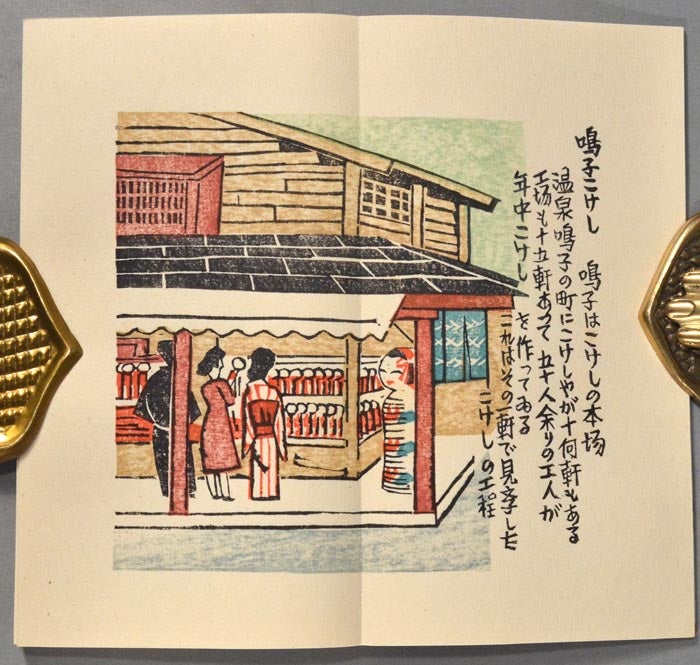 鳴子こけし　鳴子はこけしの本場
温泉鳴子の町にこけしやが十何軒もある
工場も十五軒あつて五十人余りの工人が
年中こけしを作つてゐる
これはその一軒で見学した
こけしの工程